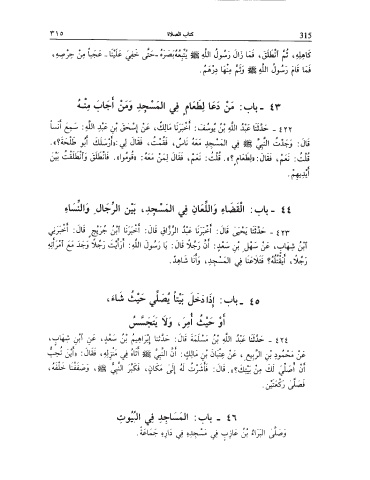 ٣١٥ كتاب الصلاة 315
كَاهِلِهِ، ثُمَّ انْطَلَقَ، فَمَا زَالَ رَسُولُ اللَّهِ ﷺ يُتْبِعُهُ بَصَرَهُ -حَتَّى خَفِيَ عَلَيْنَا- عَجَباً مِنْ حِرْصِهِ،
فَمَا قَامَ رَسُولُ اللَّهِ ﷺ وَثَمَّ مِنْهَا دِرْهَمٌ.
٤٣ - باب: مَنْ دَعَا لِطَعَامٍ فِي المَسْجِدِ وَمَنْ أَجَابَ مِنْهُ
٤٢٢ - حَدَّثَنَا عَبْدُ اللَّهِ بْنُ يُوسُفَ: أَخْبَرَنَا مَالِكٌ، عَنْ إِسْحَقَ بْنِ عَبْدِ اللَّهِ: سَمِعَ أَنَساً
قَالَ: وَجَدْتُ النَّبِيَّ ﷺ فِي المَسْجِدِ مَعَهُ نَاسٌ، فَقُمْتُ، فَقَالَ لِي: «أَرْسَلَكَ أَبُو طَلْحَةَ؟».
قُلْتُ: نَعَمْ، فَقَالَ: «لِطَعَامٍ؟». قُلْتُ: نَعَمْ، فَقَالَ لِمَنْ مَعَهُ: «قُومُوا». فَانْطَلَقَ وَانْطَلَقْتُ بَيْنَ
أَيْدِيهِمْ.
٤٤ - باب: الْقَضَاءِ وَاللِّعَانِ فِي المَسْجِدِ، بَيْنَ الرِّجَالِ وَالنِّسَاءِ
٤٢٣ - حَدَّثَنَا يَحْيَى قَالَ: أَخْبَرَنَا عَبْدُ الرَّزَّاقِ قَالَ: أَخْبَرَنَا ابْنُ جُرَيْجٍ قَالَ: أَخْبَرَنِي
ابْنُ شِهَابٍ، عَنْ سَهْلِ بْنِ سَعْدٍ: أَنَّ رَجُلاً قَالَ: يَا رَسُولَ اللَّهِ: أَرَأَيْتَ رَجُلاً وَجَدَ مَعَ امْرَأَتِهِ
رَجُلاً، أَيَقْتُلُهُ؟ فَتَلَاعَنَا فِي المَسْجِدِ، وَأَنَا شَاهِدٌ.
٤٥ - باب: إِذَا دَخَلَ بَيْتاً يُصَلِّي حَيْثُ شَاءَ،
أَوْ حَيْثُ أُمِرَ، وَلَا يَتَجَسَّسُ
٤٢٤ - حَدَّثَنَا عَبْدُ اللَّهِ بْنُ مَسْلَمَةَ قَالَ: حَدَّثَنَا إِبْرَاهِيمُ بْنُ سَعْدٍ، عَنِ ابْنِ شِهَابٍ،
عَنْ مَحْمُودِ بْنِ الرَّبِيعِ، عَنْ عِتْبَانَ بْنِ مَالِكٍ: أَنَّ النَّبِيَّ ﷺ أَتَاهُ فِي مَنْزِلِهِ، فَقَالَ: «أَيْنَ تُحِبُّ
أَنْ أُصَلِّيَ لَكَ مِنْ بَيْتِكَ؟». قَالَ: فَأَشَرْتُ لَهُ إِلَى مَكَانٍ، فَكَبَّرَ النَّبِيُّ ﷺ، وَصَفَفْنَا خَلْفَهُ،
فَصَلَّى رَكْعَتَيْنِ.
٤٦ - باب: المَسَاجِدِ فِي البُيُوتِ
وَصَلَّى البَرَاءُ بْنُ عَازِبٍ فِي مَسْجِدِهِ فِي دَارِهِ جَمَاعَةً.